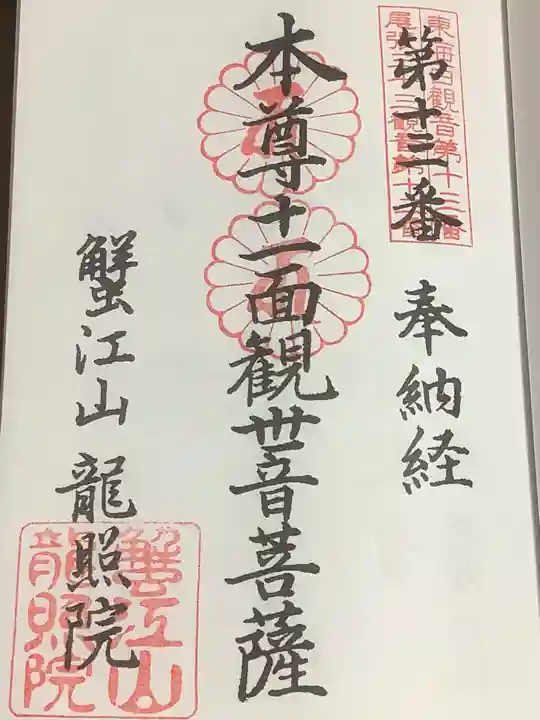 東海白寿観音第十三番
尾張三十三観音第十三番
第十三番
奉納経
本尊十一面観世音菩薩
蟹江山 龍照院
蟹江山
龍照院